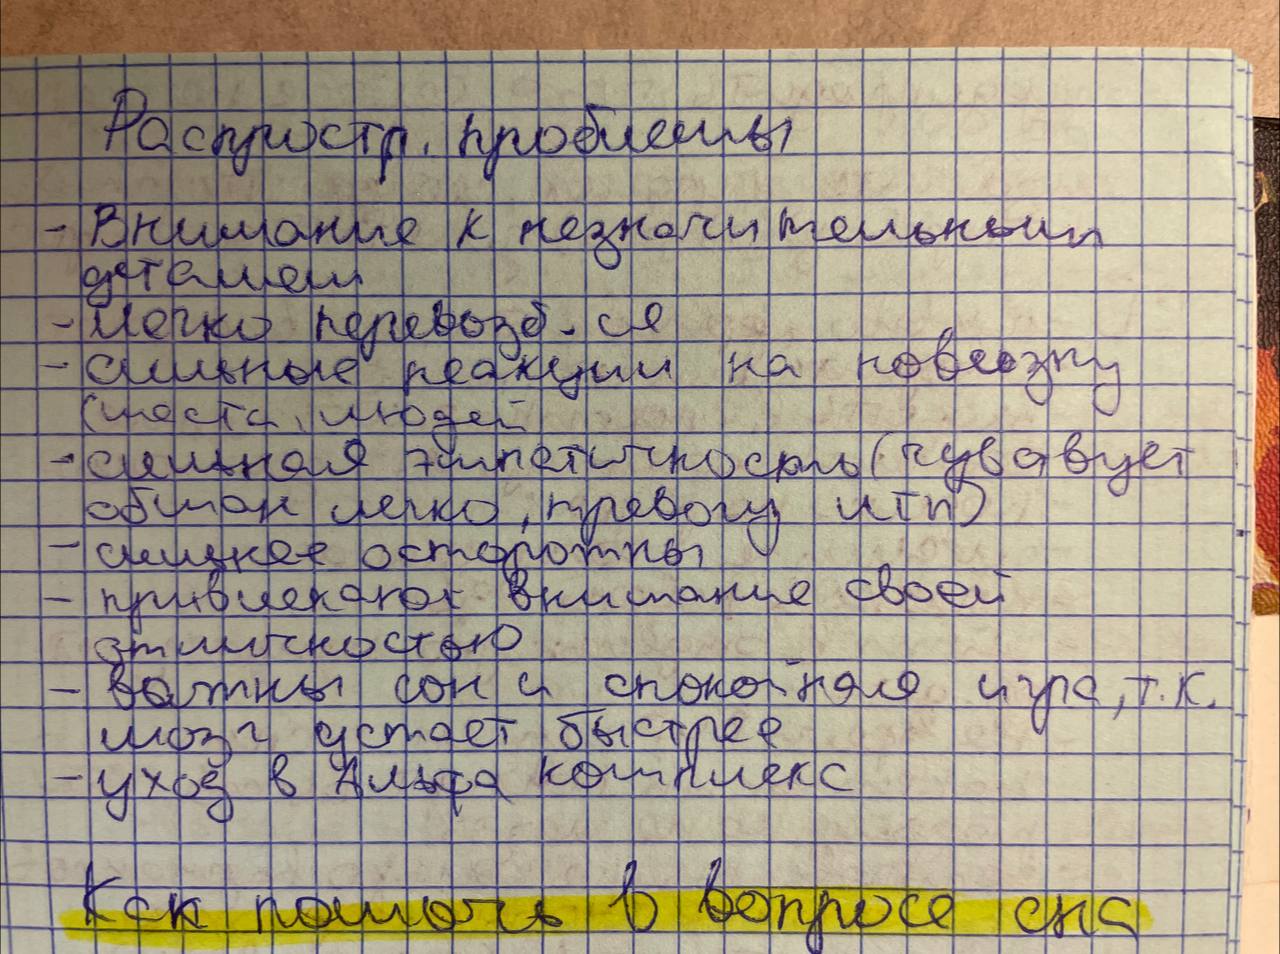 Распростр. проблемы
- Внимание к незначительным
деталям
- Легко перевозб-ся
- сильные реакции на новизну
(места, людей
- сильная эмпатичность (чувствует
обман легко, тревогу итп)
- осторожны
- привлекают внимание своей
отличностью
- важны сон и спокойная игра, т.к.
мозг устает быстрее
- уход в Альфа комплекс
Как помочь в вопросе сна